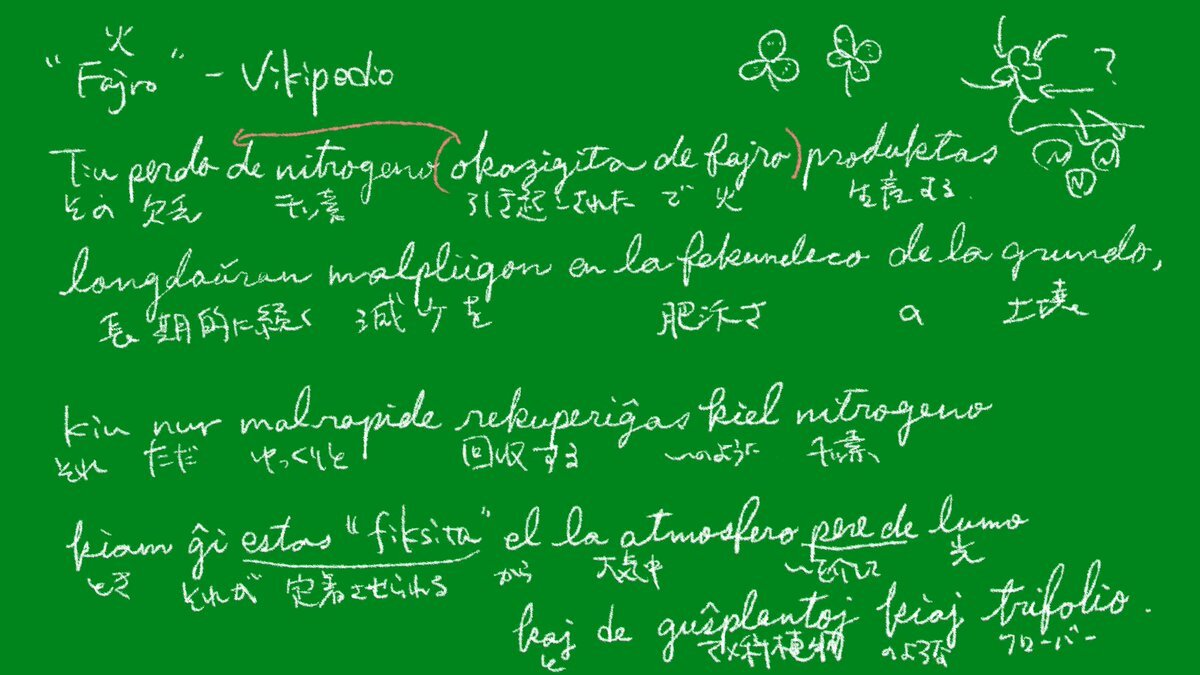 火
"Fajro" - Vikipedio
Tiu perdo de nitrogeno (okazigita de fajro) produktas
その 欠乏 チッ素 引き起こされた で 火 生産する
?
N N N
longdaŭran malpliigon en la fekundeco de la grundo,
長期的に続く 減少を 肥沃さ の 土壌
kiu nur malrapide rekuperiĝas kiel nitrogeno
それ ただ ゆっくりと 回収する 〜のように チッ素
kiam ĝi estas "fiksita" el la atmosfero pere de lumo
とき それが 定着させられる から 大気中 〜を介して 光
kaj de guŝplantoj kiaj trifolio.
と マメ科植物 のような クローバー